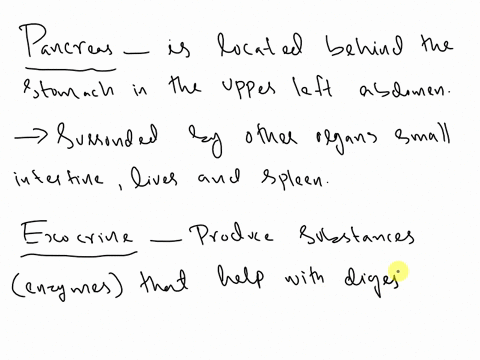 Pancreas — is located behind the
stomach in the upper left abdomen.
→ Surronded by other organs small
intestine, liver and spleen.
Exocrine — Produce substances
(enzymes) that help with diges